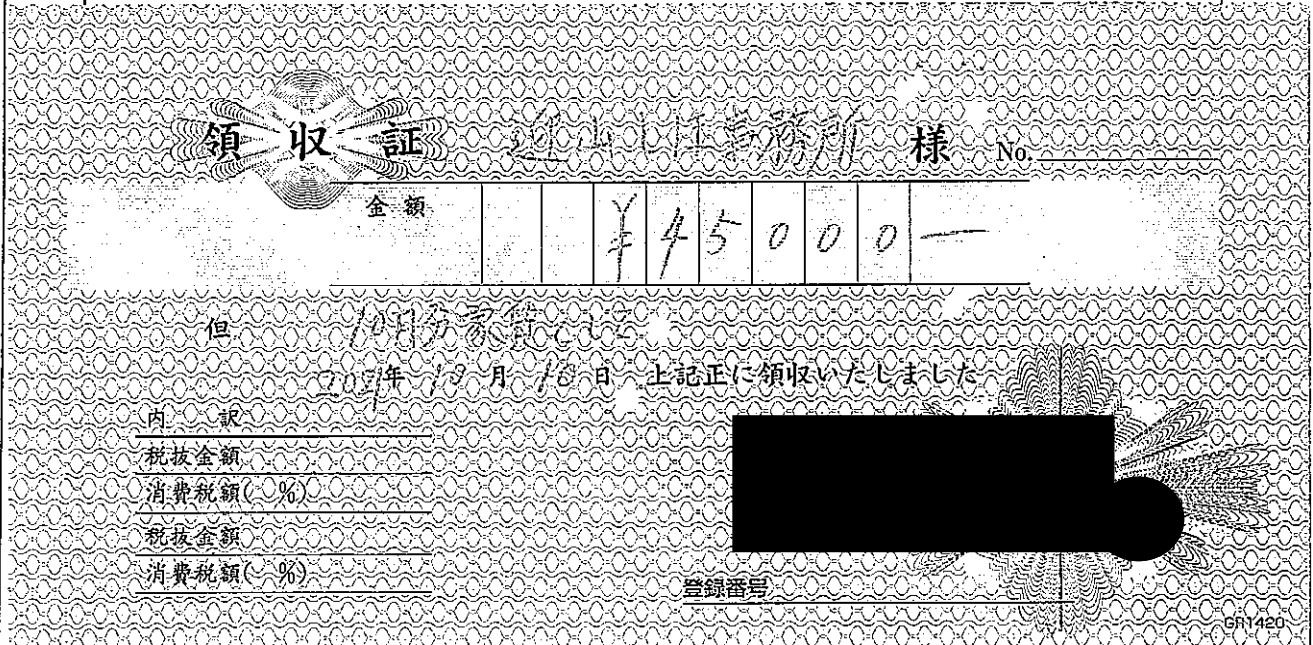 領収証 迎山し江事務所 様 No.
金額 ¥45000―
但 10月分家賃として
年 月 10日 上記正に領収いたしました
内訳
税抜金額
消費税額( %)
税抜金額
消費税額( %)
登録番号
GR1420